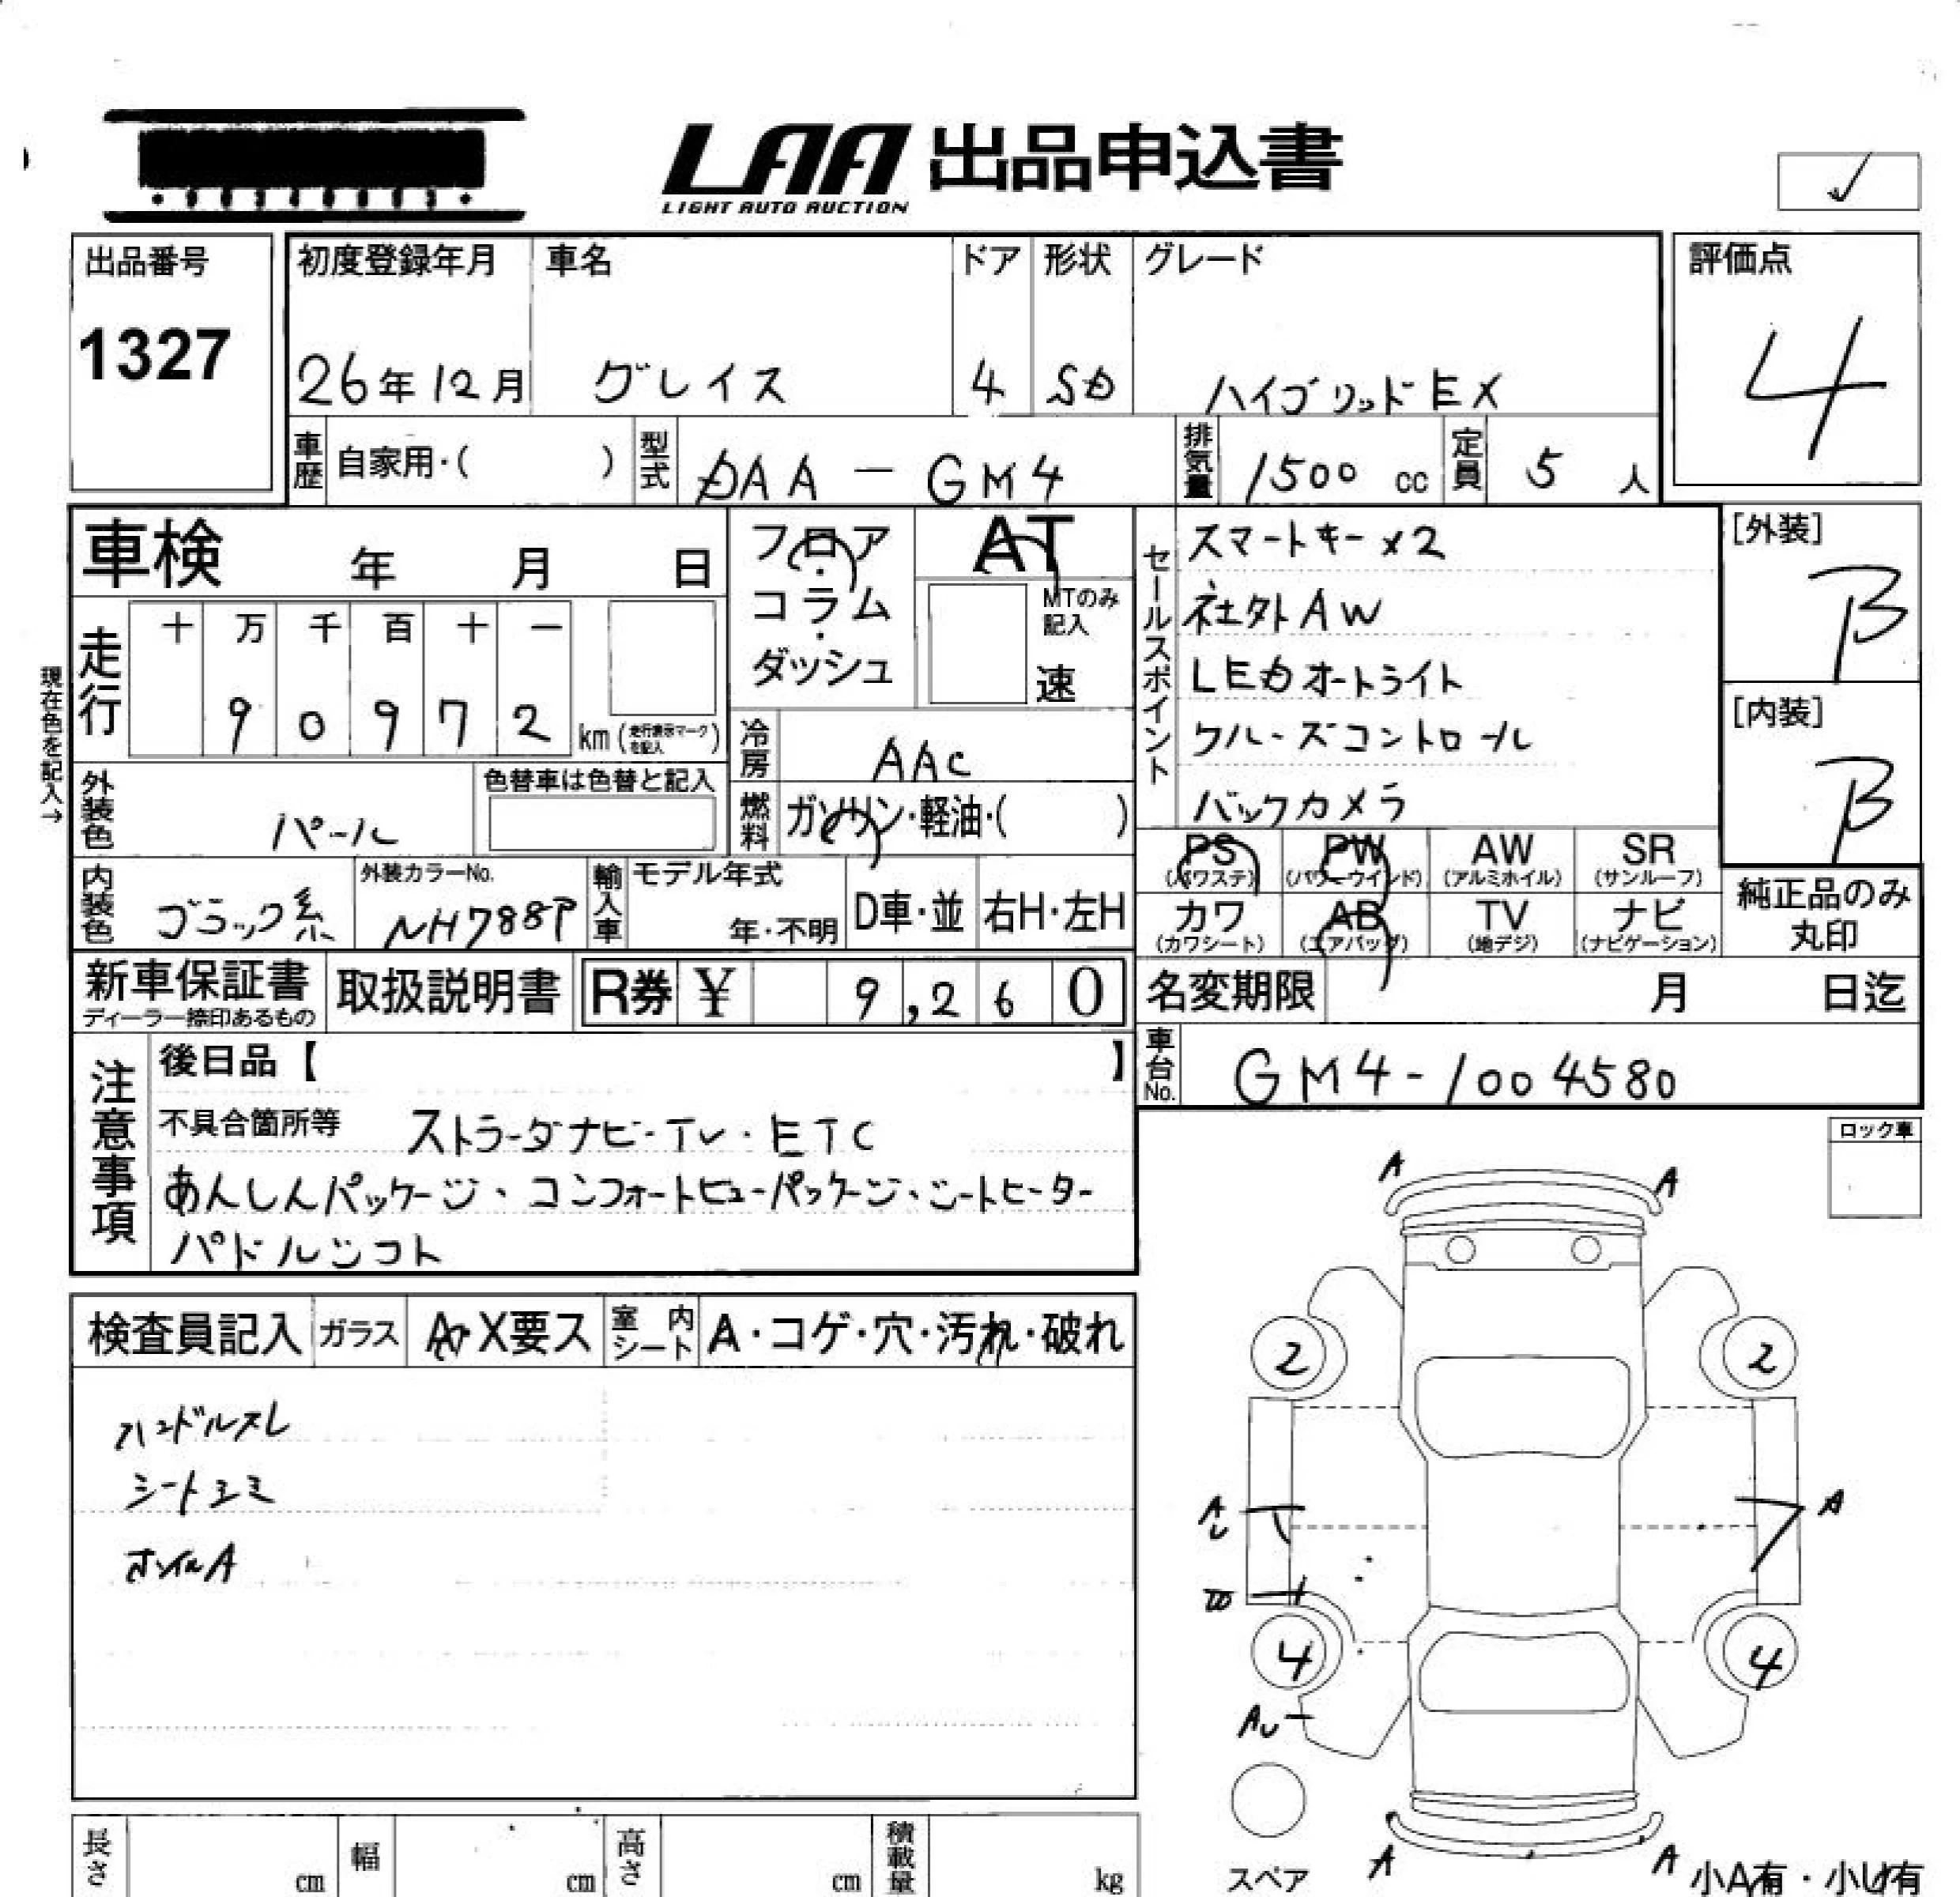 LAA 出品申込書
LIGHT AUTO AUCTION
✓
出品番号
1327
初度登録年月
26年12月
車名
グレイス
ドア
4
形状
SD
グレード
ハイブリッドEX
評価点
4
車歴 自家用・( )
型式 DAA-GM4
排気量 1500 cc
定員 5 人
車検 年 月 日
フロア・コラム・ダッシュ
AT
MTのみ記入
速
セールスポイント
スマートキー×2
社外AW
LEDオートライト
クルーズコントロール
バックカメラ
[外装]
B
[内装]
B
現在色を記入→
走行
十 万 千 百 十 一
9 0 9 7 2 km (走行表示マークを記入)
冷房 AAC
燃料 ガソリン・軽油・( )
外装色 パール
色替車は色替と記入
内装色 ブラック系
外装カラーNo.
NH788P
輸入車
モデル年式
年・不明
D車・並
右H・左H
PS (パワステ)
PW (パワーウインド)
AW (アルミホイル)
SR (サンルーフ)
カワ (カワシート)
AB (エアバッグ)
TV (地デジ)
ナビ (ナビゲーション)
純正品のみ丸印
新車保証書
ディーラー捺印あるもの
取扱説明書
R券 ¥ 9,260
名変期限 月 日迄
車台No. GM4-1004580
注意事項
後日品【 】
不具合箇所等 ストラーダナビ・TV・ETC
あんしんパッケージ、コンフォートビューパッケージ、シートヒーター
パドルシフト
ロック車
検査員記入
ガラス A・X要ス
室内シート A・コゲ・穴・汚れ・破れ
ハンドルスレ
シートシミ
ホイルA
A A
2 2
A
U
A
4 4
AU
A A
スペア
小A有・小U有
長さ cm
幅 cm
高さ cm
積載量 kg